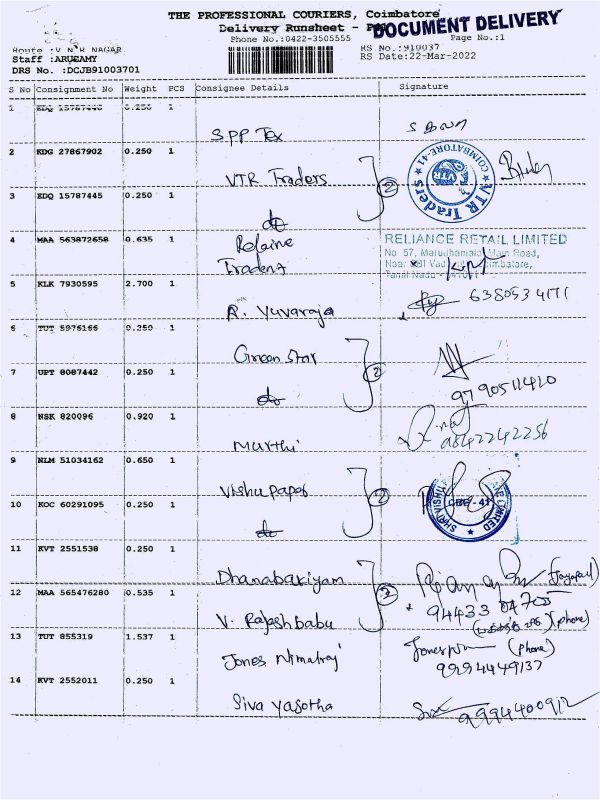 THE PROFESSIONAL COURIERS, Coimbatore
DOCUMENT DELIVERY
Delivery Runsheet -
Phone No.:0422-3505555 Page No.:1
Route :V N R NAGAR RS No.:910037
Staff :ARUKAMY RS Date:22-Mar-2022
DRS No. :DCJB91003701
S No Consignment No Weight PCS Consignee Details Signature
1 EDQ 15787446 0.250 1
SPP Tex
2 KDG 27867902 0.250 1
VTR Traders 2
COIMBATORE-41 VTR Traders
3 EDQ 15787445 0.250 1
do
4 MAA 563872658 0.635 1
Traders
RELIANCE RETAIL LIMITED
No 57, Marudhamalai Main Road,
Near SBI Coimbatore,
Tamil Nadu
5 KLK 7930595 2.700 1
R. Yuvaraja 6380534171
6 TUT 5976166 0.250 1
Green Star 2
7 UPT 8087442 0.250 1
do 9790511420
8 NSK 820096 0.920 1
Murthi 9842242256
9 NLM 51034162 0.650 1
Vishu paper 2
10 KOC 60291095 0.250 1
do
CBE - 41
LIMITED
11 KVT 2551538 0.250 1
Dhanabakiyam 2
12 MAA 565476280 0.535 1
94433 04755
V. Rajeshbabu (phone)
13 TUT 855319 1.537 1
Jones Nimalraj (phone)
9994449137
14 KVT 2552011 0.250 1
Siva Yasotha 9994400912